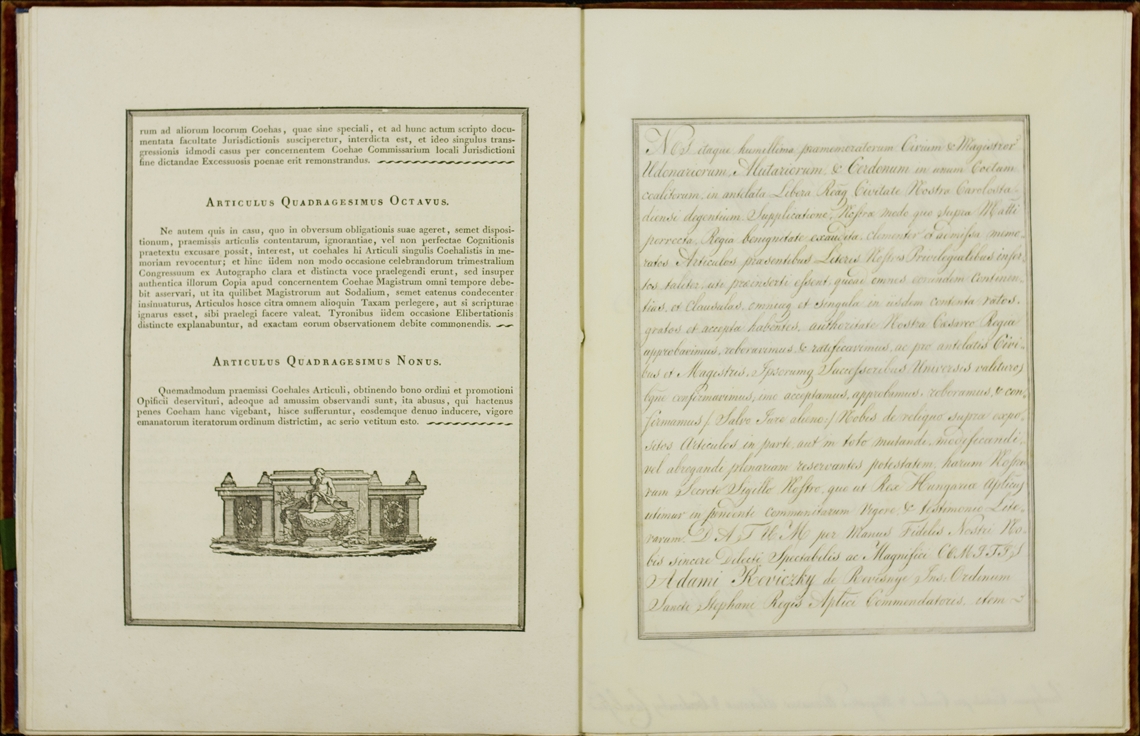 rum ad aliorum locorum Coehas, quae sine speciali, et ad hunc actum scripto docu-
mentata facultate Jurisdictionis susciperetur, interdicta est, et ideo singulus trans-
gressionis idmodi casus per concernentem Coehae Commissarium locali Jurisdictioni
sine dictandae Excessuosis poenae erit remonstrandus.
ARTICULUS QUADRAGESIMUS OCTAVUS.
Ne autem quis in casu, quo in obversum obligationis suae ageret, semet disposi-
tionum, praemissis articulis contentarum, ignorantiae, vel non perfectae Cognitionis
praetextu excusare possit, interest, ut coehales hi Articuli singulis Coehalistis in me-
moriam revocentur; et hinc iidem non modo occasione celebrandorum trimestralium
Congressuum ex Autographo clara et distincta voce praelegendi erunt, sed insuper
authentica illorum Copia apud concernentem Coehae Magistrum omni tempore debe-
bit asservari, ut ita quilibet Magistrorum aut Sodalium, semet eatenus condecenter
insinuaturus, Articulos hosce citra omnem alioquin Taxam perlegere, aut si scripturae
ignarus esset, sibi praelegi facere valeat. Tyronibus iidem occasione Elibertationis
distincte explanabuntur, ad exactam eorum observationem debite commonendis.
ARTICULUS QUADRAGESIMUS NONUS.
Quemadmodum praemissi Coehales Articuli, obtinendo bono ordini et promotioni
Opificii deservituri, adeoque ad amussim observandi sunt, ita abusus, qui hactenus
penes Coeham hanc vigebant, hisce sufferuntur, eosdemque denuo inducere, vigore
emanatorum iteratorum ordinum districtim, ac serio vetitum esto.
NOS itaque humillima præmemoratorum Civium & Magistror
Udenariorum, Alutariorum, & Cordonum in unum Coetum
coalitorum, in antelata Libera Reag Civitate Nostra Carolosta-
diensi degentium Supplicatione, Nostræ modo quo supra Matti
porrecta, Regia benignitate exaudita clementer et admissa, memo-
ratos Articulos præsentibus Literis Nostris Privilegialibus inser-
tos taliter, uti præinserti essent, quoad omnes eorundem Continen-
tias, et Clausulas, omniaq et singula in iisdem contenta ratos,
gratos et accepta habentes, authoritate Nostra Cæsareo Regia
approbavimus, roboravimus & ratificavimus, ac pro antelatis Civi-
bus et Magistris, Ipsorumq Successoribus Universis valituros
confirmavimus, imo acceptamus, approbamus, roboramus, & con-
firmamus /: Salvo Jure alieno :/ Nobis de reliquo supra expo-
sitos Articulos in parte, aut in toto mutandi, modificandi
vel abrogandi plenariam reservantes potestatem, harum Nostra-
rum Secreto Sigillo Nostro, quo ut Rex Hungariæ Aplicus
utimur in pendente communitarum Vigore, & testimonio Lite-
rarum. DATUM per Manus Fidelis Nostri No-
bis sincere Dilecti Spectabilis ac Magnifici COMITIS
Adami Reviczky de Revisnye Ins: Ordinum
Sancti Stephani Regis Aplici Commendatores, item